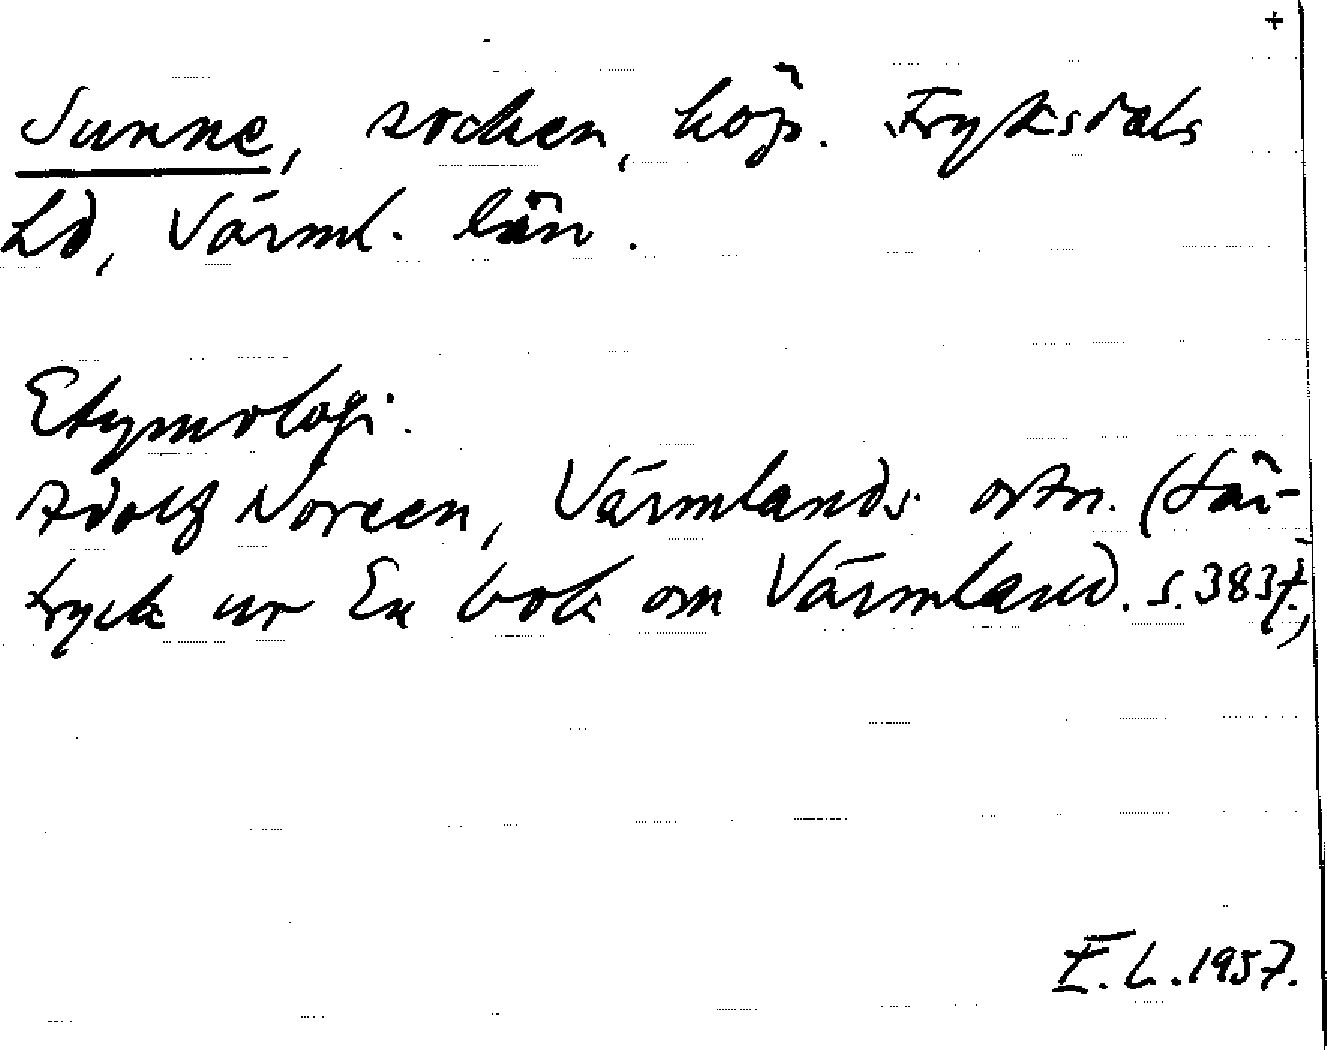 +
Sunne, socken, köp. Fryksdals
hd, Värml. län.
Etymologi.
Adolf Noreen, Värmlands ortn. (Sär-
tryck ur En bok om Värmland. s. 383f.,
E. L. 1957.